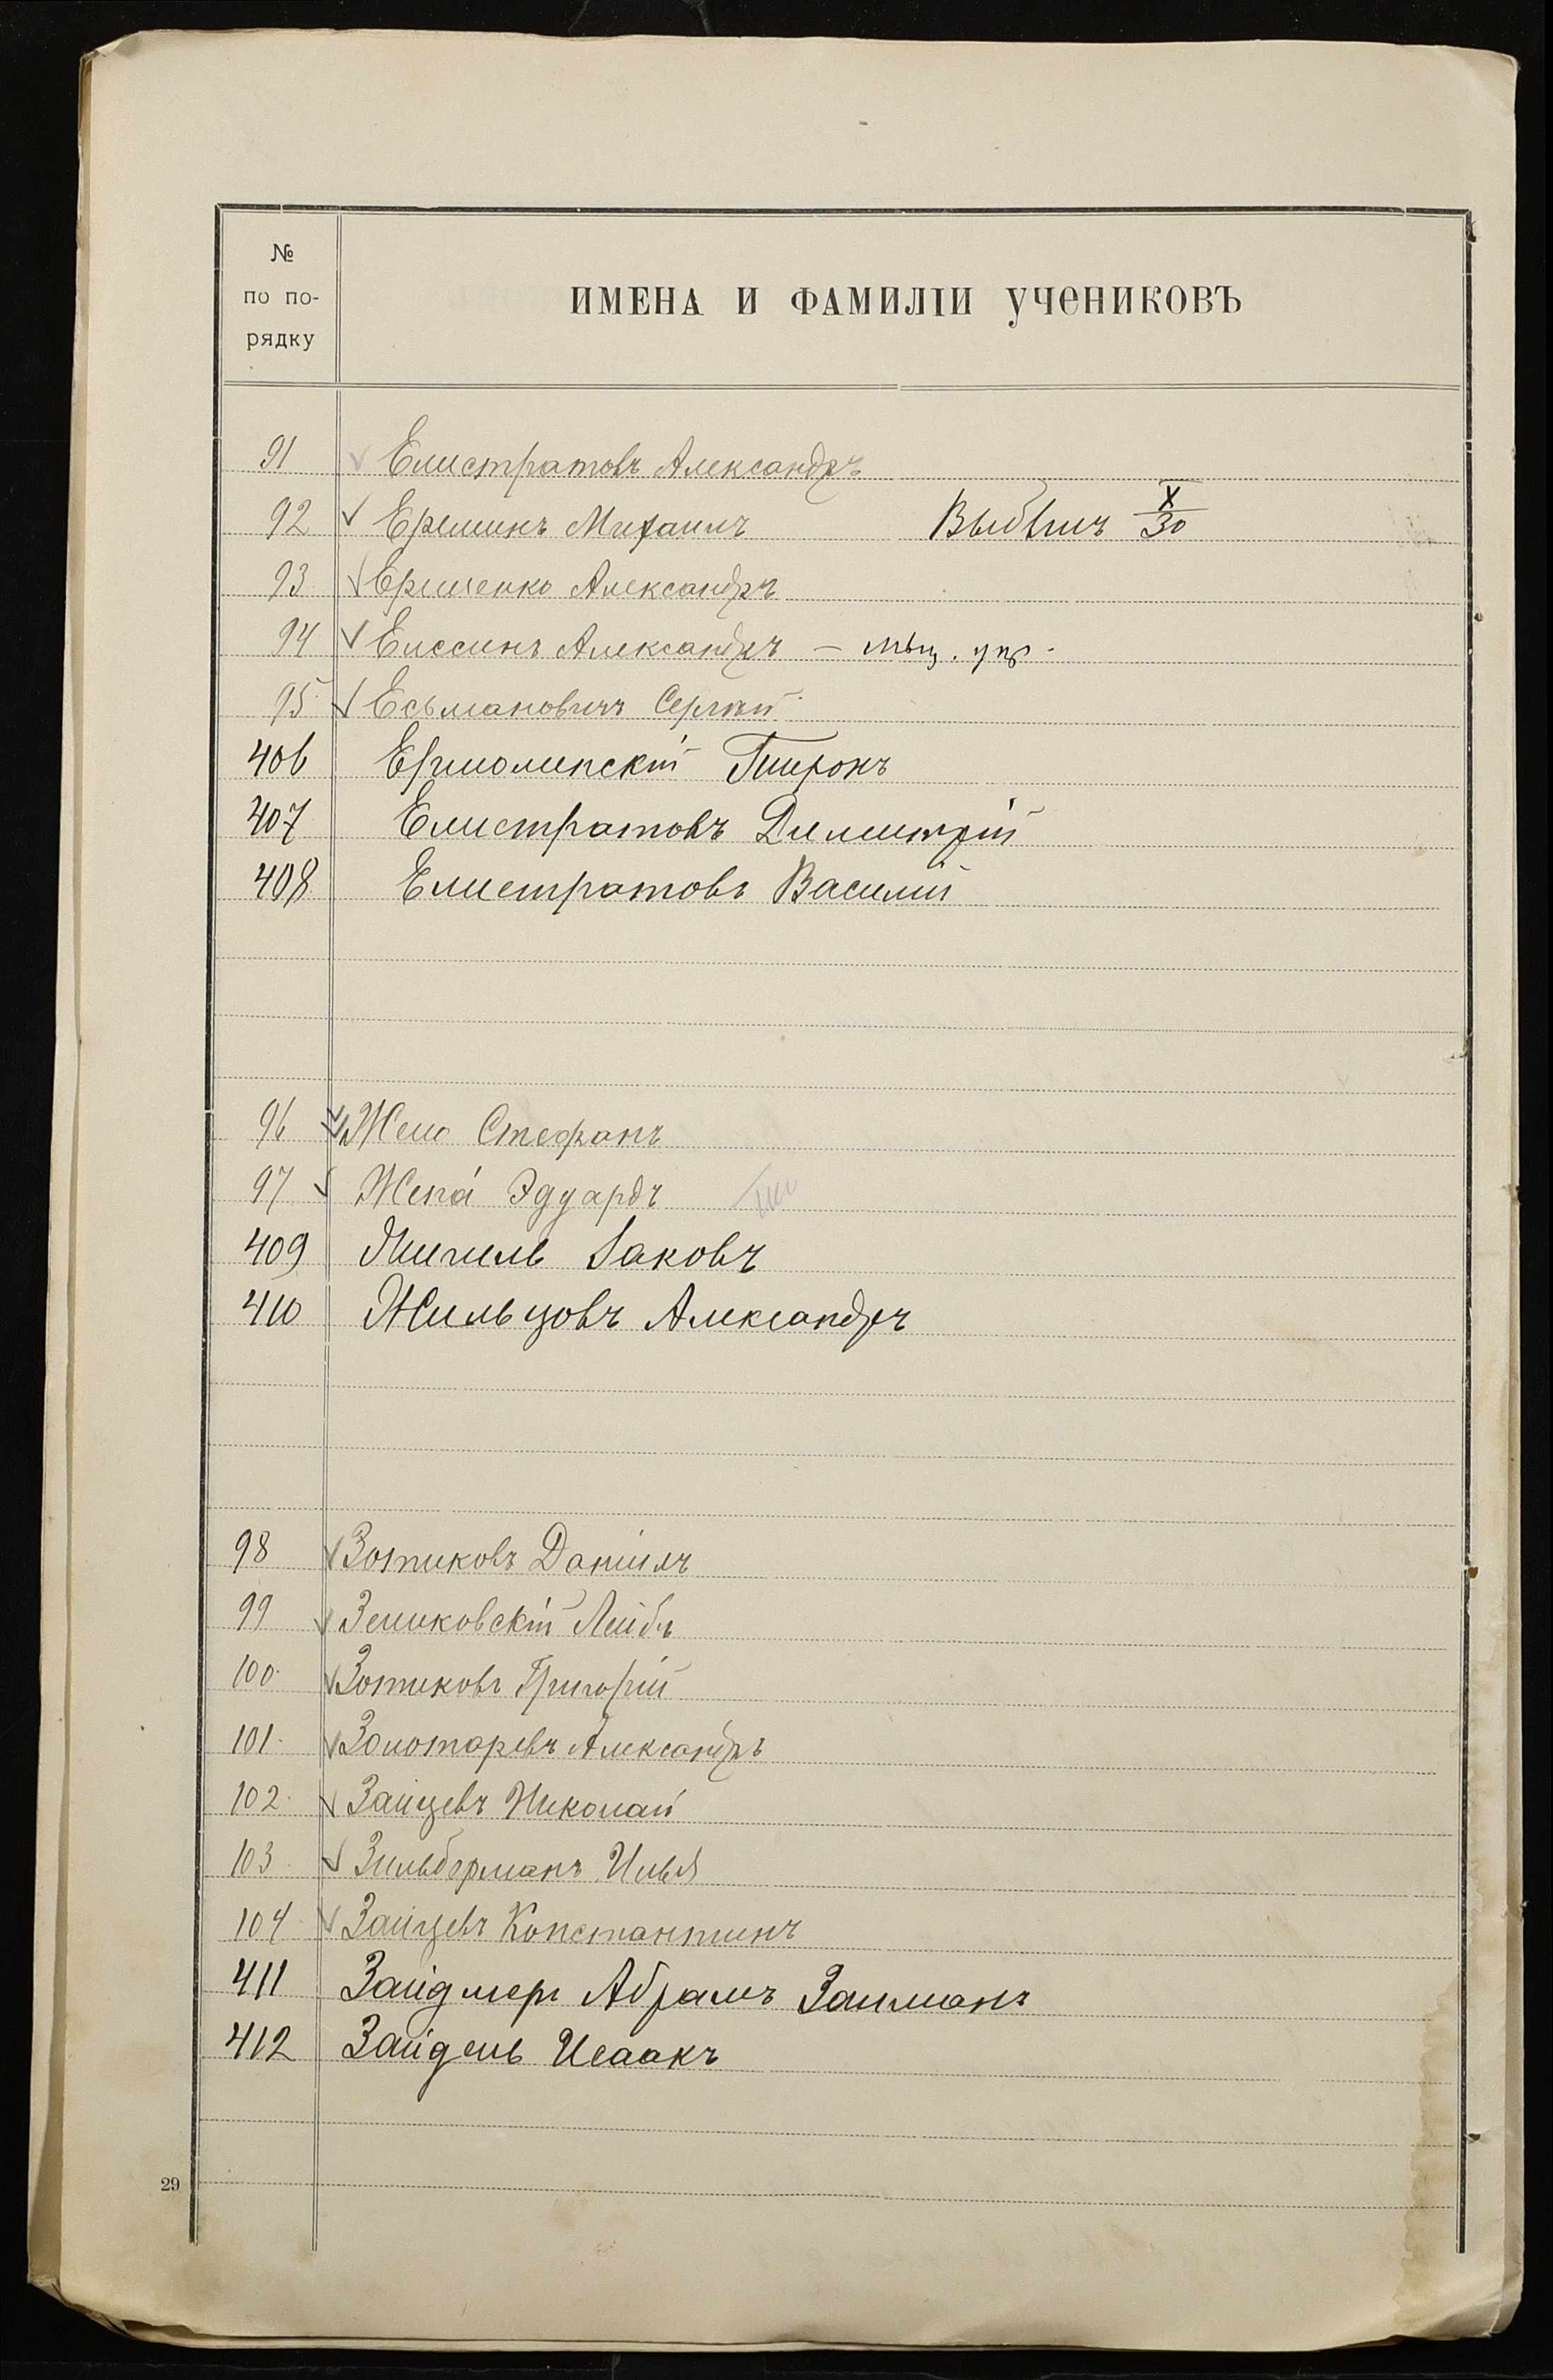 №
по по-
рядку
ИМЕНА И ФАМИЛІИ УЧЕНИКОВЪ
91 Елистратовъ Александръ
92 Ереминъ Михаилъ Выбылъ X/30
93 Ерименко Александръ
94 Елесинъ Александръ – мѣщ. упр.
95 Есьмановичъ Сергѣй
406 Ермолинскій
407 Елистратовъ Димитрій
408 Елистратовъ Василій
96 Стефанъ
97 Жепа́ Эдуардъ
409 Яковъ
410 Жильцовъ Александръ
98 Зотиковъ Даніилъ
99 Зеликовскій Лейбъ
100 Зотиковъ Григорій
101 Золотаревъ Александръ
102 Зайцевъ Николай
103 Зильберманъ Илья
104 Зайцевъ Константинъ
411 Зайдлеръ Абрамъ Залманъ
412 Зайдель Исаакъ
29